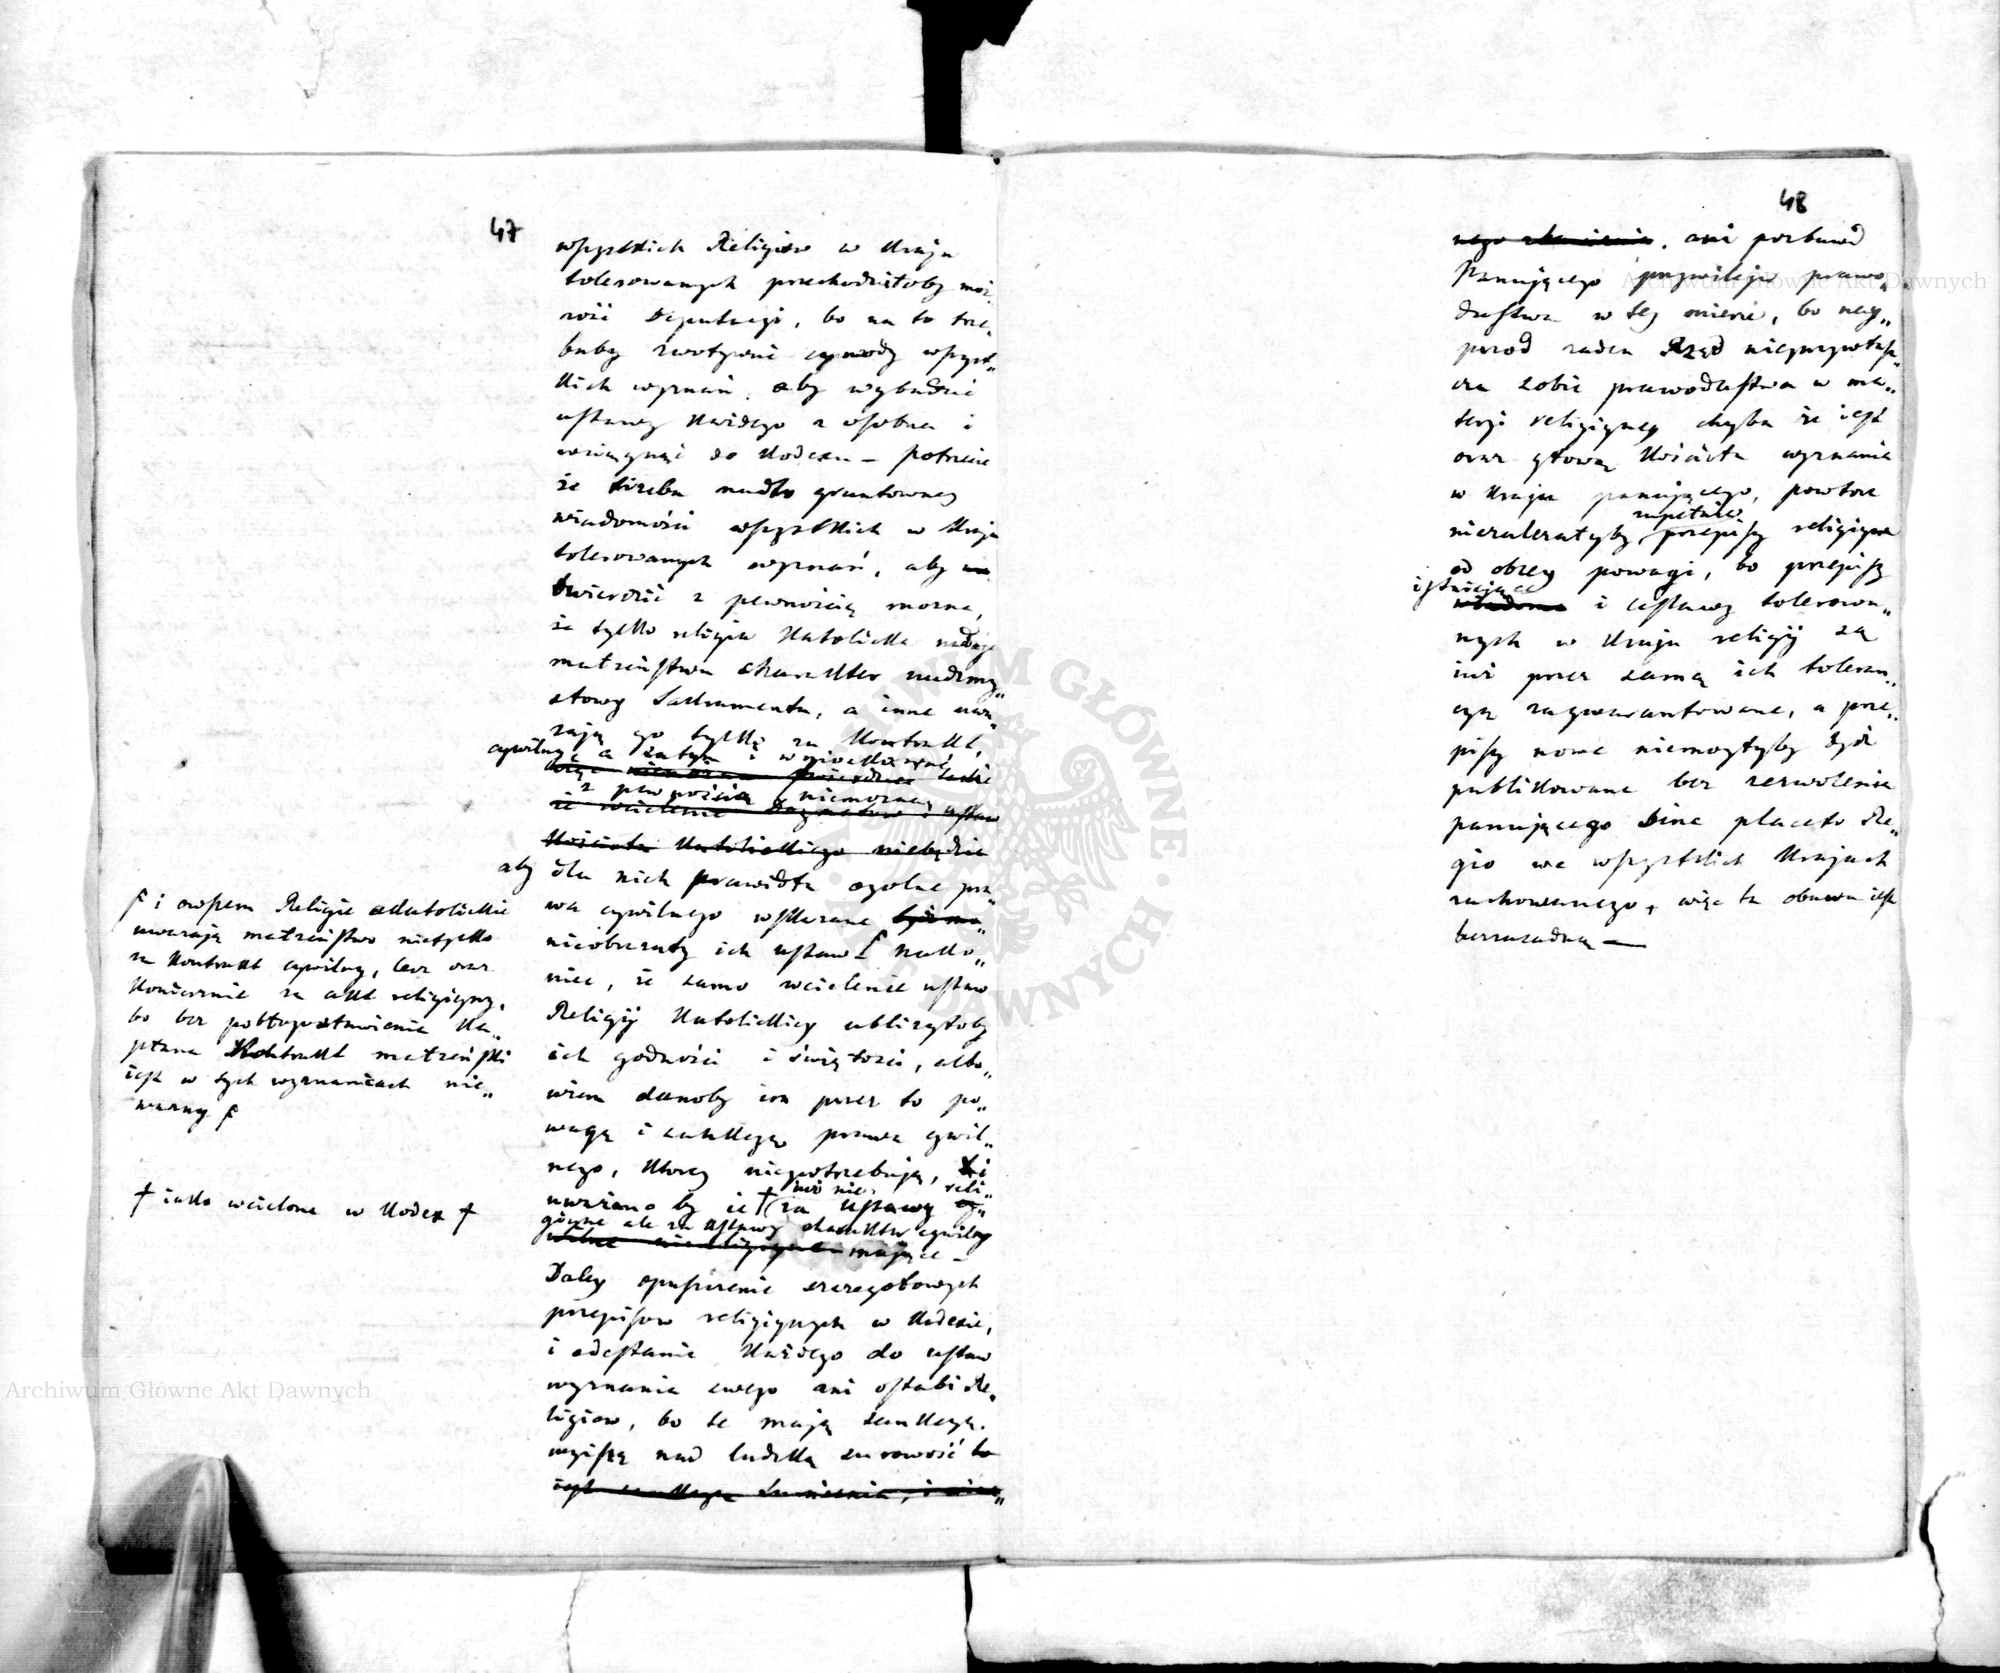 47
wszystkich Religiow w Kraju
tolerowanych przechodziłoby moż„
ność Deputacyi, bo na to trze„
baby zwoływać synody wszyst„
kich wyznań, aby wybadać
ustawy każdego z osobna i
wciągnąć do Kodexu — potrzecie
że trzeba nadto gruntowney
wiadomości wszystkich w Kraju
tolerowanych wyznań, aby
twierdzić z pewnością można,
że tylko religia Katolicka nadaje
małżeństwu charakter nadzmy„
słowy Sakramentu, a inne uwa„
żają go tylko za Kontrakt,
cywilny a zatym i wnioskować
z pewnością niemożna
że wcielenie i ustaw
Kościoła Katolickiego niebędzie
aby dla nich prawidła ogolne pra„
wa cywilnego wskazane
nieobrażały ich ustaw nako„
niec, że samo wcielenie ustaw
Religij Katolickiey ubliżyłoby
ich godności i świętości, albo„
wiem danoby im przez to po„
wagę i sankcyą prawa cywil„
nego, ktorey niepotrzebują, i
już nie reli„
uważano by ie † za ustawy
gijne ale za ustawy charakter cywilny
maiące —
Daley opuszczenie szczegołowych
przepisow religijnych w Kodexie,
i odesłanie każdego do ustaw
wyznania swego ani osłabi Re„
ligiow, bo te mają sankcyą
wyższą nad ludzką surowość
iest sankcya Sumienia, i
i owszem Religie Akatolickie
uważają małżeństwo nietylko
za kontrakt cywilny, lecz oraz
koniecznie za akt religijny,
bo bez pobłogosławienia Ka„
płana Kontrakt małżeński
iest w tych wyznaniach nie„
ważny
† iako wcielone w Kodex †
48
nego , ani pozbawi
Panującego przywileju prawo„
dastwa w tey mierze, bo nay„
przod żaden Rząd nieprzywłasz„
cza sobie prawodastwa w ma„
teryi religijney chyba że iest
oraz głową Kościoła wyznania
w Kraju panującego, powtore
niezależałyby zupełnie przepisy religijne
od obcey powagi, bo przepisy
istniejące i ustawy tolerowa„
nych w Kraju religij są
już przez samą ich toleran„
cyą zagwarantowane, a prze„
pisy nowe niemogłyby bydź
publikowane bez zezwolenia
panującego Sine placeto Re„
gio we wszystkich Krajach
zachowanego, więc ta obawa iest
bezzasadną —